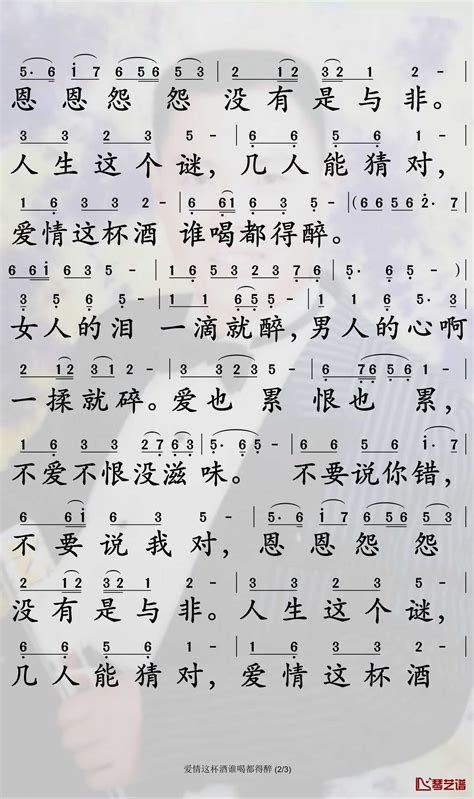 5· 6 i 7 6 5 6 5 3 | 2 1 2 3 2 1 | 2 - |
恩恩怨怨 没有是与非。
3 3 2 3 | 5 - | 6 6 5 6 | 3 - |
人生这个谜，几人能猜对，
1 6 3 3 | 2 - | 6 6 1 6 3 | 5 - | (6 6 5 6 2· 7 |
爱情这杯酒 谁喝都得醉。
6 6 1 3 5 - | 1 6 5 3 2 3 7 6 | 5· 6 5 - )|
女人的泪 一滴就醉，男人的心啊
一揉就碎。爱也 累 恨也 累，
不爱不恨没滋味。 不要说你错，
6 6 i 6 3 | 5 - | 5· 6 i 7 6 5 6 5 3 |
不要说我对，恩恩怨 怨
2 1 2 3 2 1 | 2 - | 3 3 2 3 | 5 - |
没有是与非。人生这个谜，
6 6 5 6 | 3 - | 1 6 3 3 | 2 - |
几人能猜对，爱情这杯酒
爱情这杯酒谁喝都得醉 (2/3)
琴艺谱